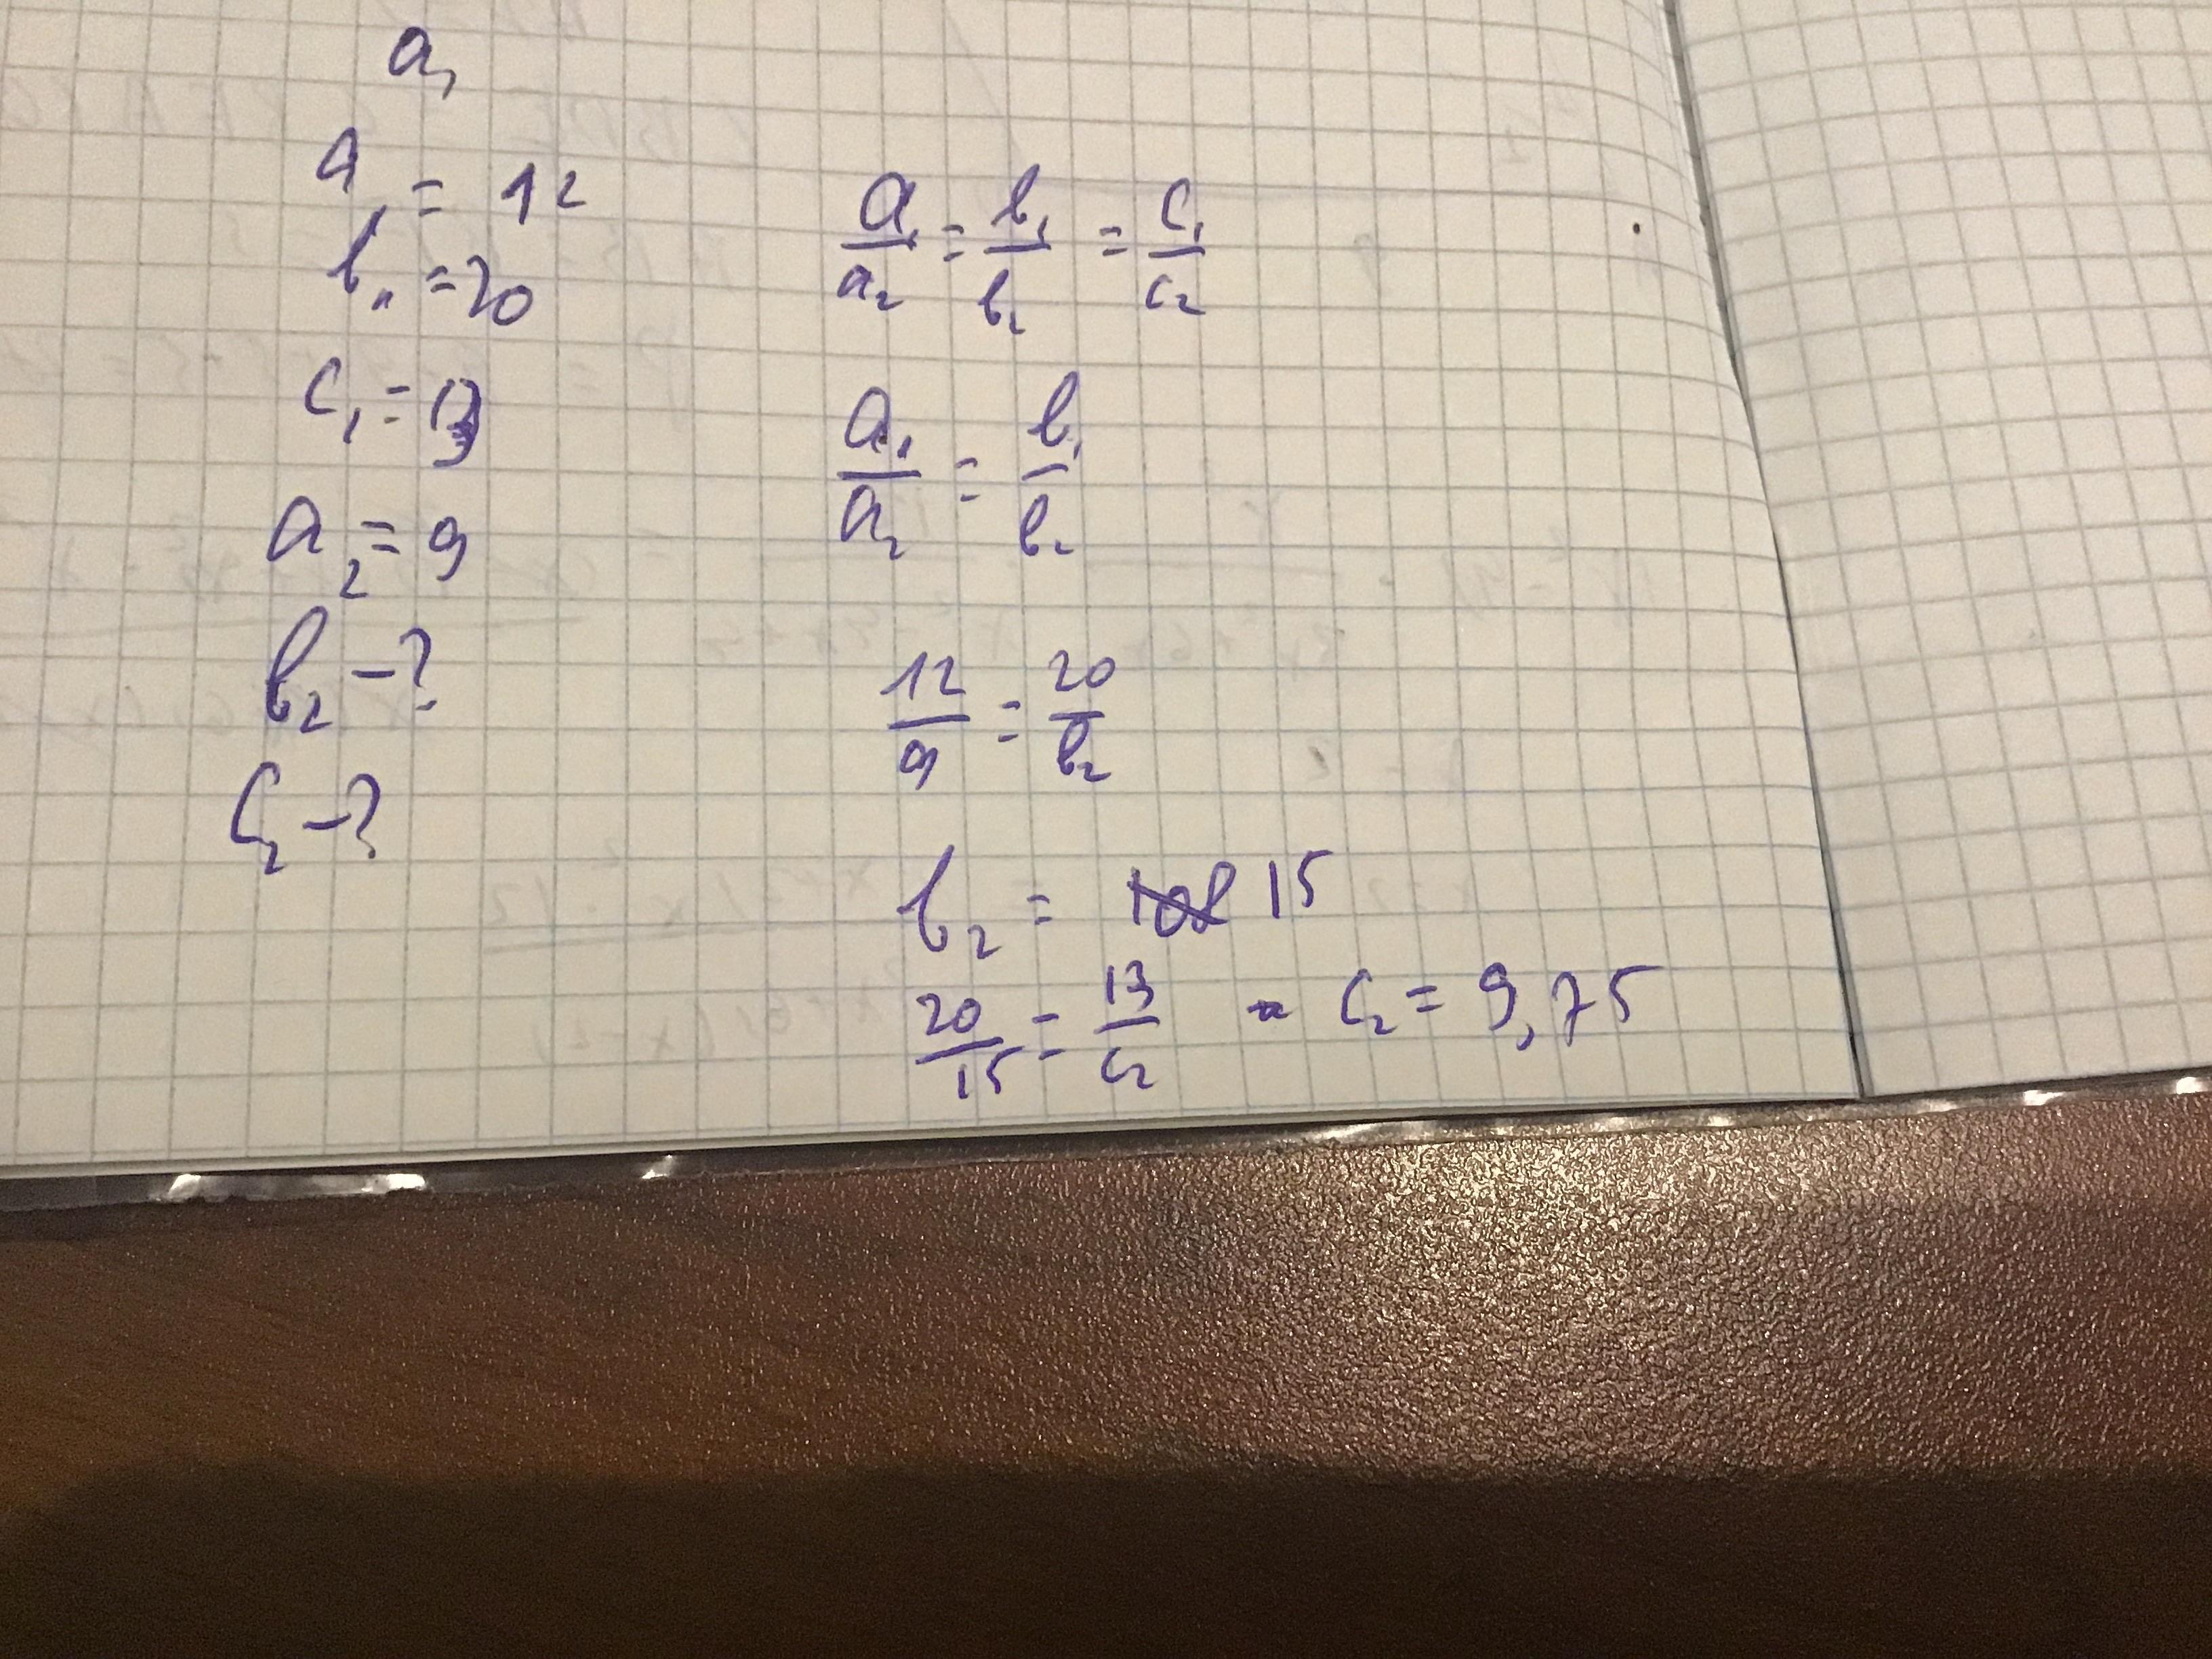 a₁
a₁ = 12
b₁ = 20
c₁ = 13
a₂ = 9
b₂ - ?
c₂ - ?
a₁/a₂ = b₁/b₂ = c₁/c₂
a₁/a₂ = b₁/b₂
12/9 = 20/b₂
b₂ = 15
20/15 = 13/c₂ - c₂ = 9,75